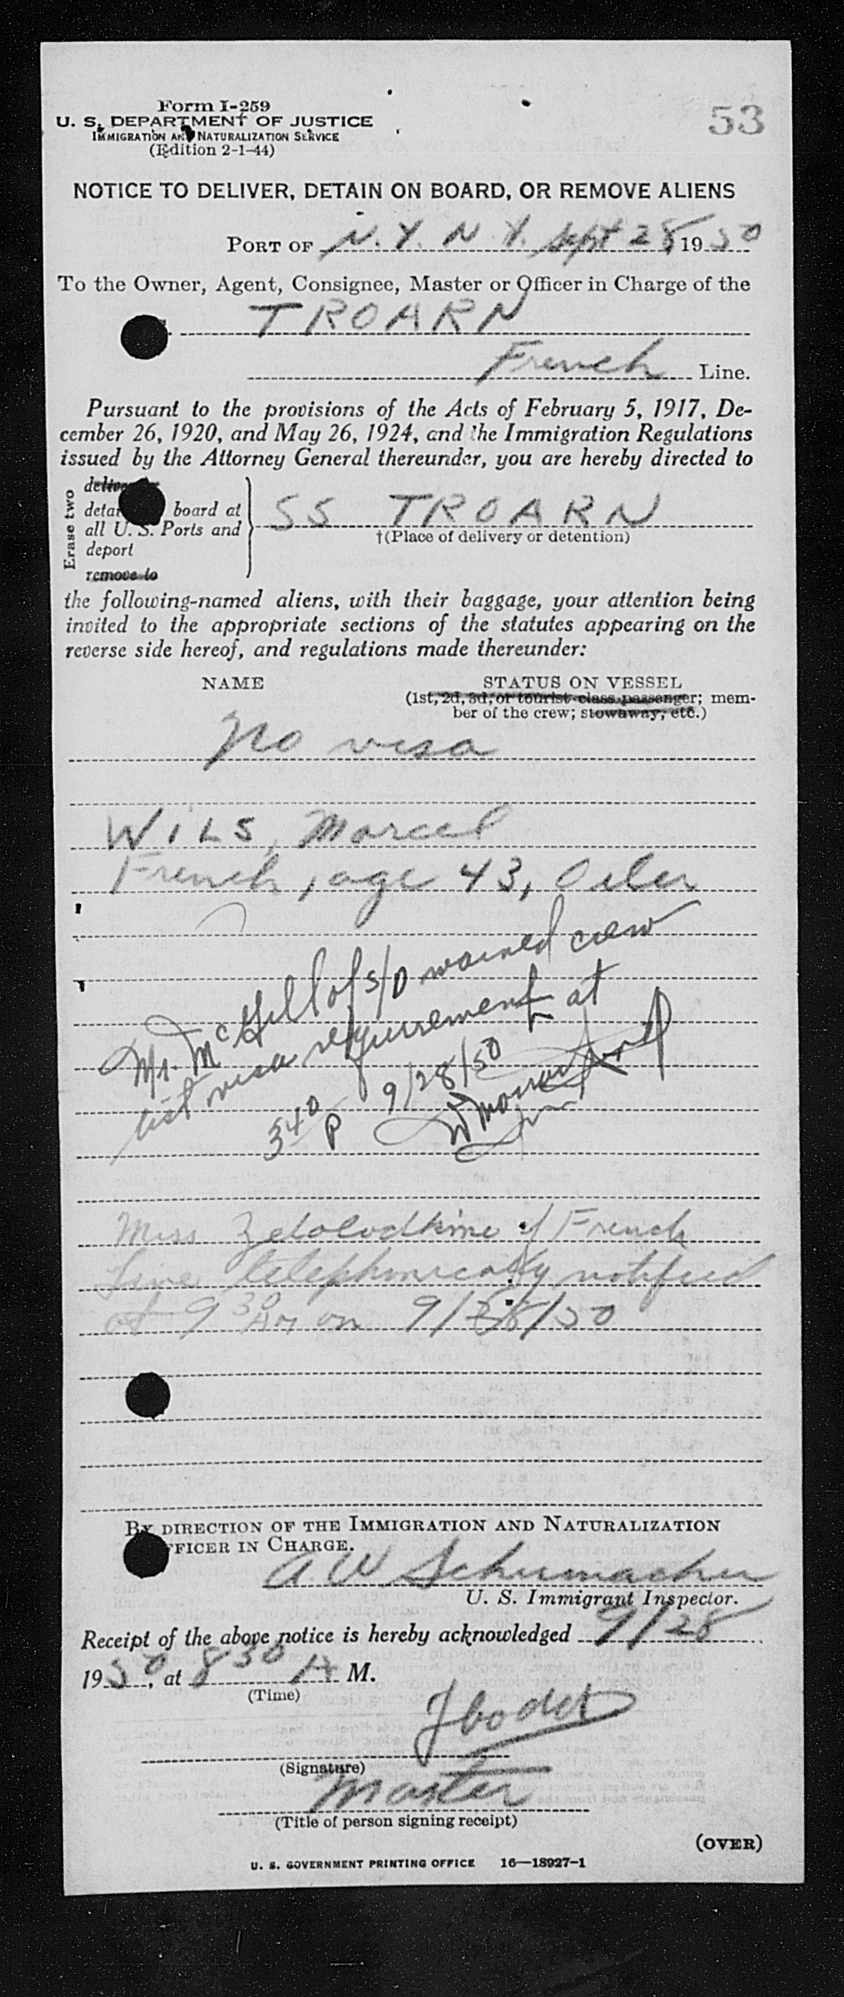 53
Form I-259
U. S. DEPARTMENT OF JUSTICE
IMMIGRATION AND NATURALIZATION SERVICE
(Edition 2-1-44)
NOTICE TO DELIVER, DETAIN ON BOARD, OR REMOVE ALIENS
PORT OF N. Y. N Y. Sept 28 1950
To the Owner, Agent, Consignee, Master or Officer in Charge of the
TROARN
French Line.
Pursuant to the provisions of the Acts of February 5, 1917, De-
cember 26, 1920, and May 26, 1924, and the Immigration Regulations
issued by the Attorney General thereunder, you are hereby directed to
Erase two
deliver
board at
all U. S. Ports and
deport
remove to
SS TROARN
†(Place of delivery or detention)
the following-named aliens, with their baggage, your attention being
invited to the appropriate sections of the statutes appearing on the
reverse side hereof, and regulations made thereunder:
NAME STATUS ON VESSEL
(1st, 2d, 3d, or tourist-class passenger; mem-
ber of the crew; stowaway, etc.)
No visa
WILS, Marcel
French, age 43, Oiler
Mr. McGill of S/D waived crew
list visa requirement at
340 P 9/28/50
Miss of French
Line telephonically notified
at 9 30 AM on 9/28/50
BY DIRECTION OF THE IMMIGRATION AND NATURALIZATION
OFFICER IN CHARGE.
A W Schumacher
U. S. Immigrant Inspector.
Receipt of the above notice is hereby acknowledged 9/28
1950, at 8 30 A M.
(Time)
(Signature)
Master
(Title of person signing receipt)
(OVER)
U. S. GOVERNMENT PRINTING OFFICE 16—18927-1